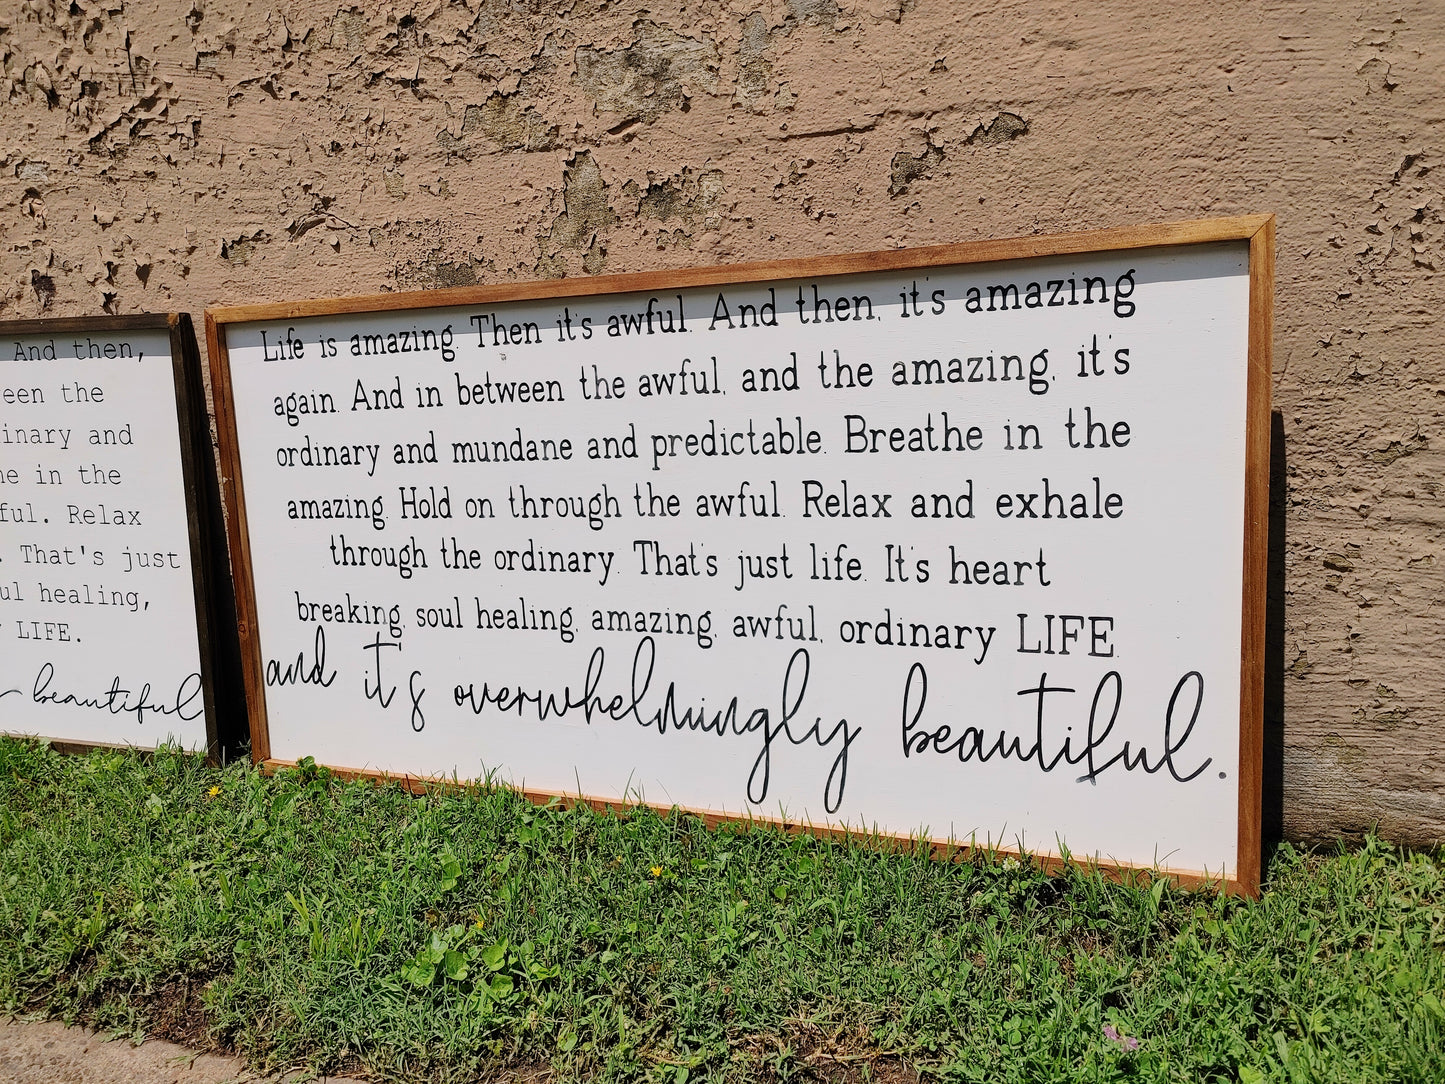 And then,
een the
inary and
e in the
ful. Relax
. That's just
ul healing,
LIFE.
beautiful
Life is amazing. Then it's awful. And then, it's amazing
again. And in between the awful, and the amazing, it's
ordinary and mundane and predictable. Breathe in the
amazing. Hold on through the awful. Relax and exhale
through the ordinary. That's just life. It's heart
breaking, soul healing, amazing, awful, ordinary LIFE.
and it's overwhelmingly beautiful.